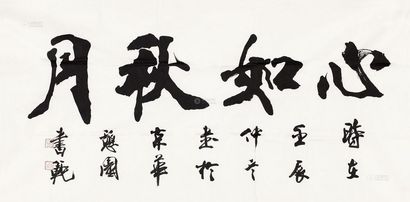 心如秋月
時在
壬辰
仲冬
書於
京華
憩園
書乾